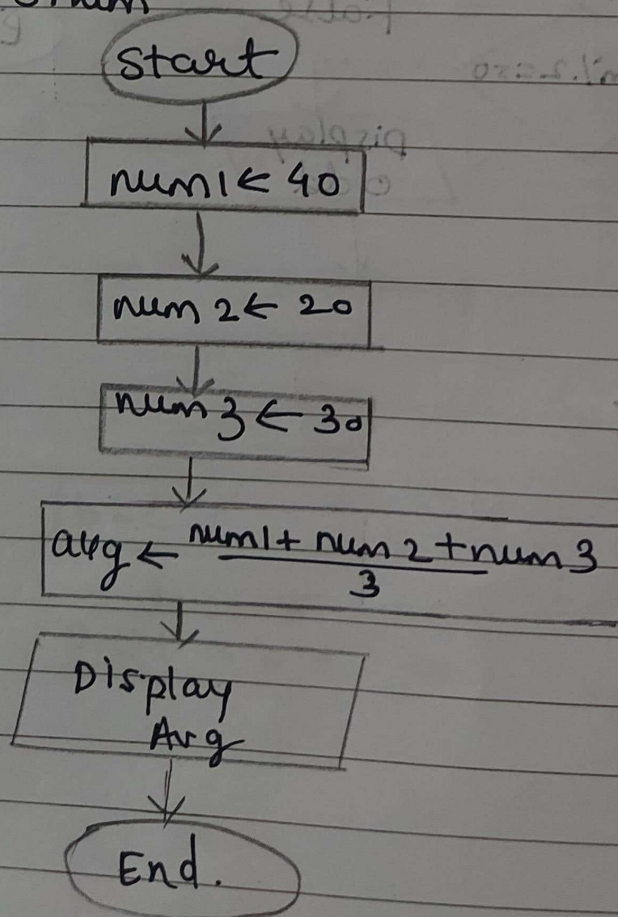 Start
num1 ← 40
num 2 ← 20
num 3 ← 30
avg ← num1 + num 2 + num 3
3
Display
Avg
End.